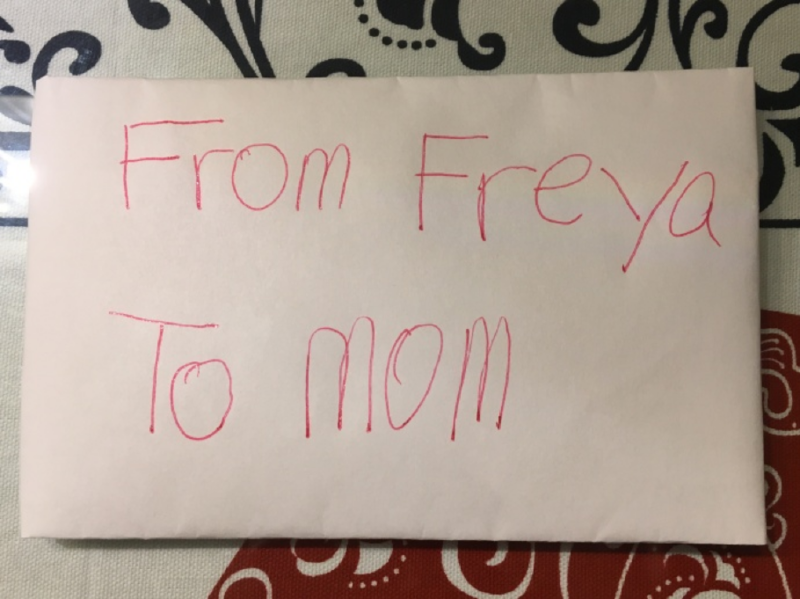 From Freya
To mom